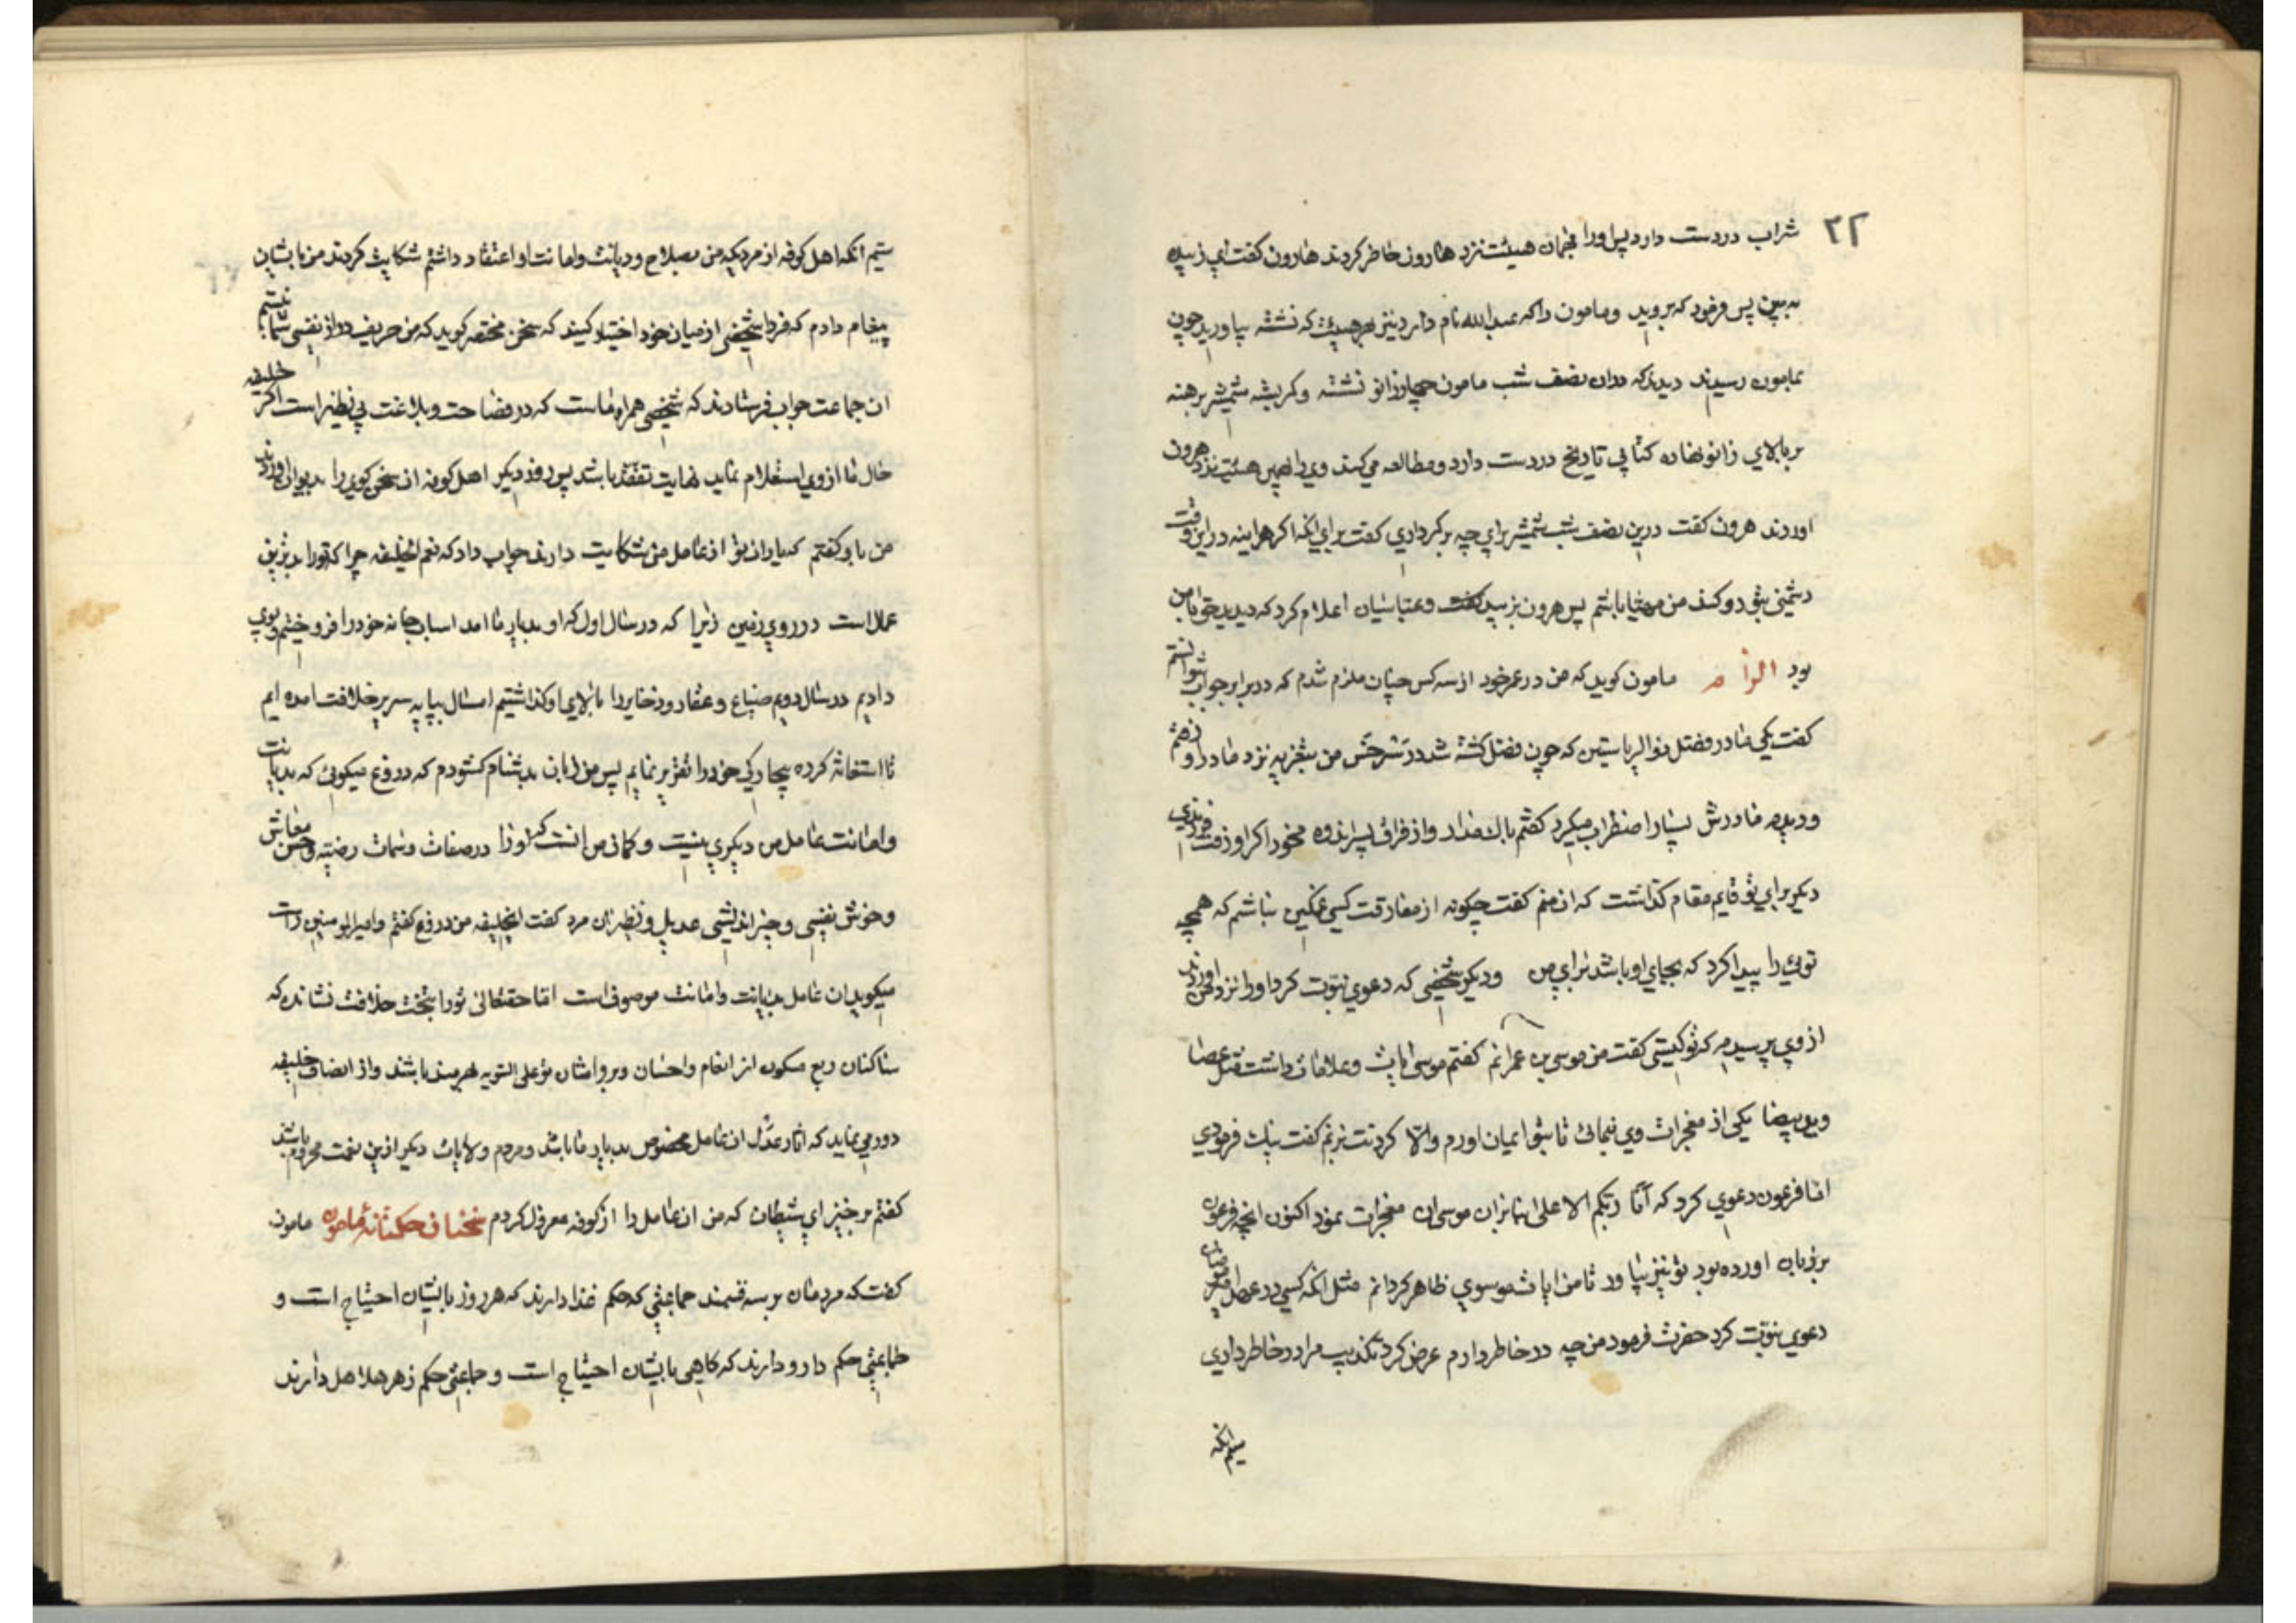 ۲۲
شراب در دست دارد پس او را بهمان هیئت نزد هارون حاضر کردند هارون گفت ای زبیده
به بین پس فرمود که بروید و مامون را که عبدالله نام دارد نیز بهر هیئت که نشسته بیاورید چون
بمامون رسیدند دیدند که دران نصف شب مامون چهار زانو نشسته و کریشه شمشیر برهنه
بر بالای زانو نهاده کتابی تاریخ در دست دارد و مطالعه می کند وی را بهمین هیئت نزد هرون
اوردند هرون گفت درین نصف شب شمشیر برای چه برگرداری گفت برای انکه اگر هراینه در این وقت
دشمنی بتو رو کند من مهیا باشم پس هرون بزبیده گفت و عباسیان اعلام کرد که دیدید حق با من
بود مامون گوید که من در عمر خود از سه کس چنان ملزم شدم که در برابر جواب نتوانستم
گفت یکی مادر فضل ذوالریاستین که چون فضل کشته شد در سرخس من بتعزیه نزد مادر او رفتم
و دیدم مادرش بسیار اضطراب میکرد گفتم باک مدار و از فراق پسر اندوه مخور اگر او رفت فرزندی
دیگر برای تو قایم مقام گذاشت که ان منم گفت چگونه از مفارقت کسی غمگین نباشم که همچه
توئی را پیدا کرد که بجای او باشد برای من و دیگر شخصی که دعوی نبوت کرد او را نزد من اوردند
از وی پرسیدم که تو کیستی گفت من موسی بن عمرانم گفتم موسی ایات و علامات داشت مثل عصا
و ید بیضا یکی از معجزات وی بنمای تا بتو ایمان اورم والا گردنت بزنم گفت نیک فرمودی
اما فرعون دعوی کرد که انا ربکم الاعلی بنابران موسی ان معجزات بمود اکنون انچه فرعون
بر زبان اورده بود تو نیز بیاور تا من ایات موسوی ظاهر گردانم مثل انکه کسی در عصر امیر مومنان
دعوی نبوت کرد حضرت فرمود من چه در خاطر دارم عرض کرد تکذیب مرا در خاطر داری
سیم انکه
سیم انکه اهل کوفه از مردیکه من بصلاح و دیانت و امانت او اعتقاد داشتم شکایت کردند من بایشان
پیغام دادم که فردا شخصی از میان خود اختیار کنید که سخن مختصر گوید که من حریف دراز نفسی شما نیستم
ان جماعت جواب فرستادند که شخصی همراه ماست که در فصاحت و بلاغت بی نظیر است اگر خلیفه
حال ما از وی استعلام نماید نهایت تفقد باشد پس روز دیگر اهل کوفه ان سخن گوی را بدیوان اوردند
من با و گفتم که یاران تو از عامل من شکایت دارند جواب داد که نعم الخلیفه چرا که تو را بدترین
عمال است در روی زمین زیرا که در سال اول که او بدیار ما امد اسباب خانه خود را فروختیم و بوی
دادیم در سال دویم ضیاع و عقار و ذخایر را ببالای او گذاشتیم امسال بپایه سریر خلافت امده ایم
تا استغاثه کرده بیچارگی خود را تقریر نمایم پس من زبان بدشنام گشودم که دروغ میگوئی که بدیانت
و امانت عامل من دیگری نیست و گمان من انست که او را در صفات و سمات رضیه و حسن معاش
و خوش نفسی و خیر اندیشی عدیل و نظیر ان مرد گفت ایخلیفه من دروغ گفتم و امیرالمومنین راست
میگوید ان عامل بدیانت و امانت موصوف است اما حقتعالی تو را بتخت خلافت نشانده که
ساکنان ربع مسکون از انعام و احسان و بر و امتنان تو علی السویه بهره مند باشند و از انصاف خلیفه
دور می نماید که اثار عدل ان عامل مخصوص بدیار ما باشد و مردم ولایات دیگر ازین نعمت محروم باشند
گفتم برخیز ای شیطان که من ان عامل را از کوفه معزول کردم سخنان حکمتانه مامون مامون
گفت که مردمان بر سه قسمند جماعتی که حکم غذا دارند که هر روز بایشان احتیاج است و
جماعتی حکم دارو دارند که گاهی بایشان احتیاج است و جماعتی حکم زهر هلاهل دارند